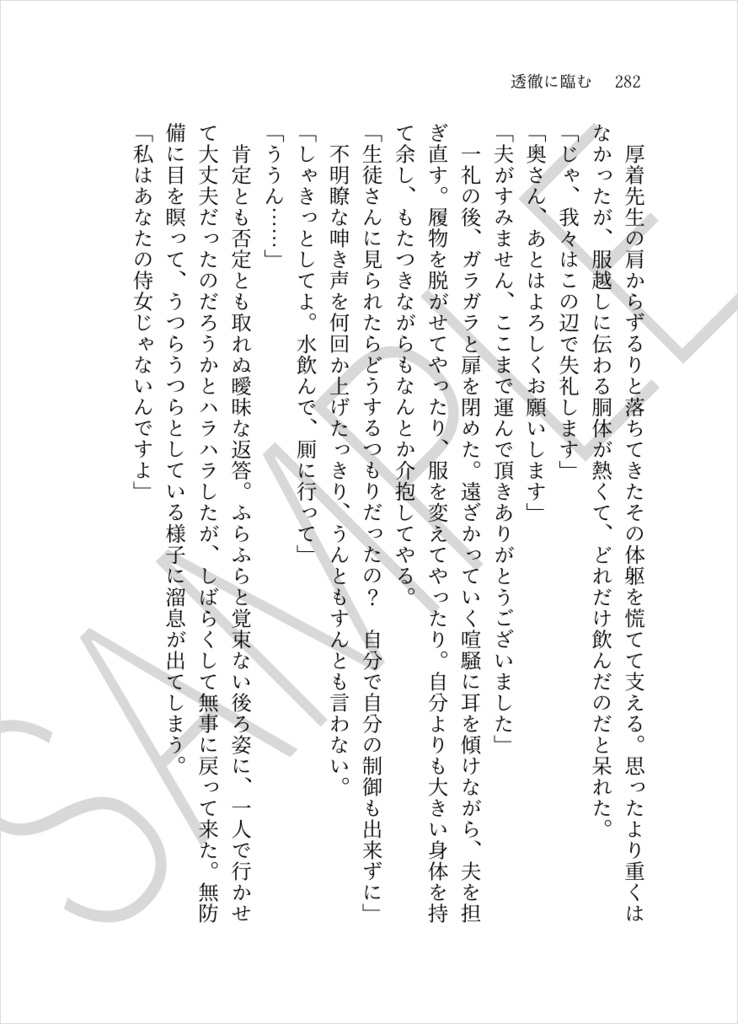 透徹に臨む 282
厚着先生の肩からずるりと落ちてきたその体躯を慌てて支える。思ったより重くは
なかったが、服越しに伝わる胴体が熱くて、どれだけ飲んだのだと呆れた。
「じゃ、我々はこの辺で失礼します」
「奥さん、あとはよろしくお願いします」
「夫がすみません、ここまで運んで頂きありがとうございました」
一礼の後、ガラガラと扉を閉めた。遠ざかっていく喧騒に耳を傾けながら、夫を担
ぎ直す。履物を脱がせてやったり、服を変えてやったり。自分よりも大きい身体を持
て余し、もたつきながらもなんとか介抱してやる。
「生徒さんに見られたらどうするつもりだったの？　自分で自分の制御も出来ずに」
不明瞭な呻き声を何回か上げたっきり、うんともすんとも言わない。
「しゃきっとしてよ。水飲んで、厠に行って」
「ううん……」
肯定とも否定とも取れぬ曖昧な返答。ふらふらと覚束ない後ろ姿に、一人で行かせ
て大丈夫だったのだろうかとハラハラしたが、しばらくして無事に戻って来た。無防
備に目を瞑って、うつらうつらとしている様子に溜息が出てしまう。
「私はあなたの侍女じゃないんですよ」
SAMPLE